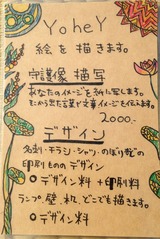 YoheY
絵を描きます。
守護像 描写
あなたのイメージを紙に写します。
むかう出た言葉が文章イメージも伝えます。
2000.-
デザイン
名刺・チラシ・シャツ・のぼり数の
印刷もの デザイン
○デザイン料+印刷料
ランプ、壁、机、どこでも描きます。
○デザイン料